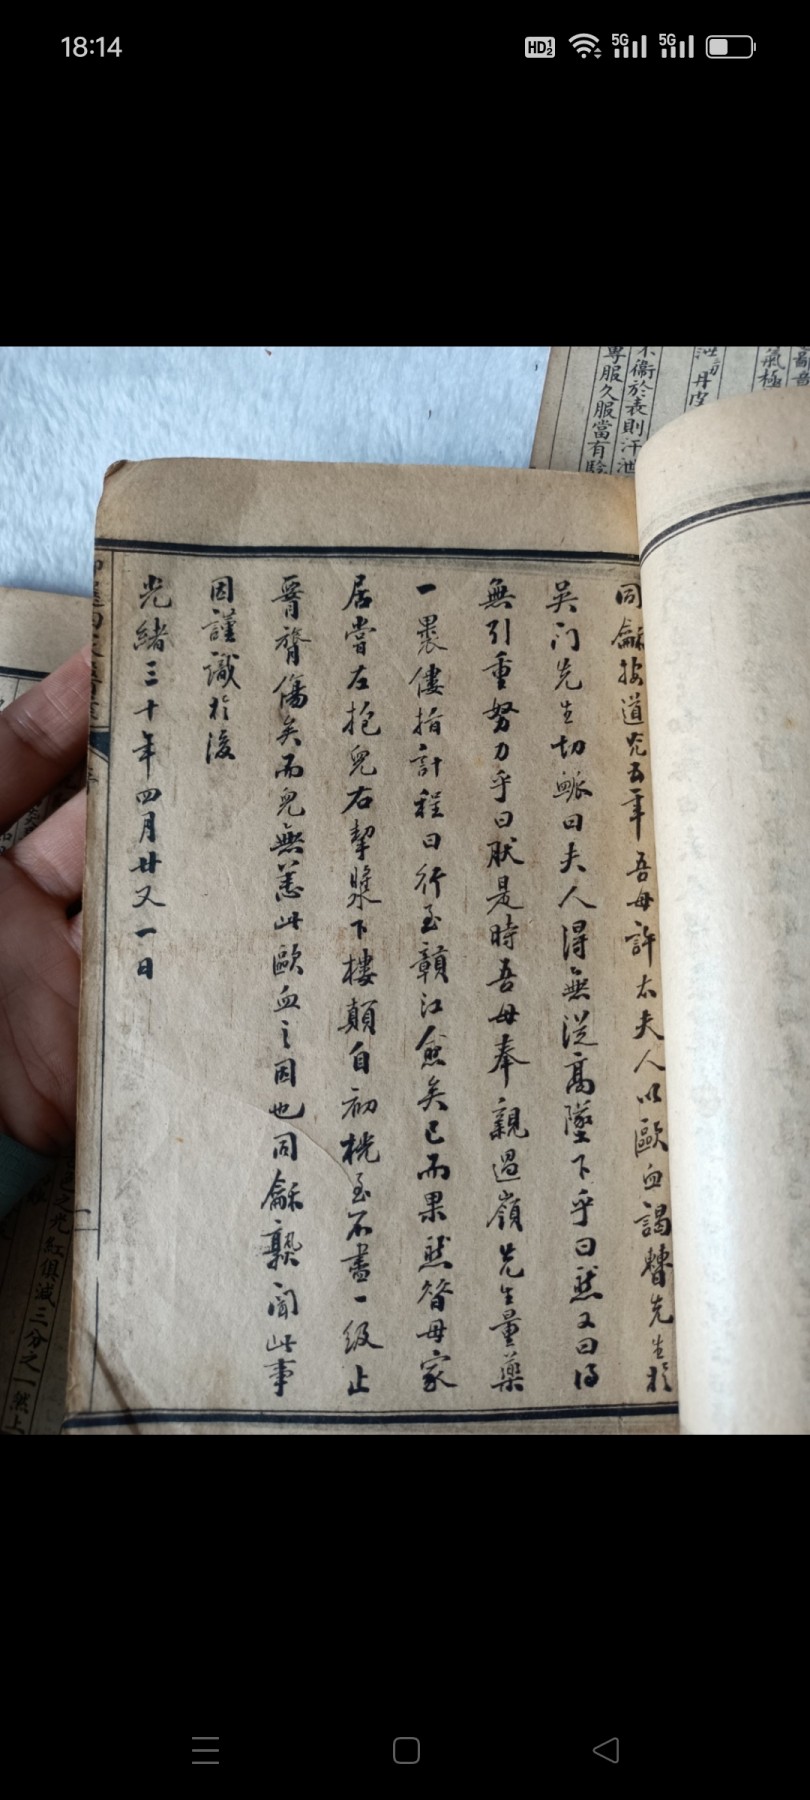 18:14
HD 1 2
5G
5G
同龢按道光五年吾母許太夫人以歐血謁簪先生於
吴门先生切脈曰夫人得無從高墜下乎曰然又曰得
無引重努力乎曰肰是時吾母奉親過嶺先生量藥
一裹僂指計程曰行至贛江愈矣已而果然簪母家
居嘗左抱兒右挈漿下樓顛自初桄至不盡一級止
脊膂傷矣而兒無恙此歐血之因也同龢孰聞此事
因謹識於後
光緒三十年四月廿又一日
氣極
丹皮
不衞於表則汗泄
專服久服當有驗
紅俱減三分之一無上